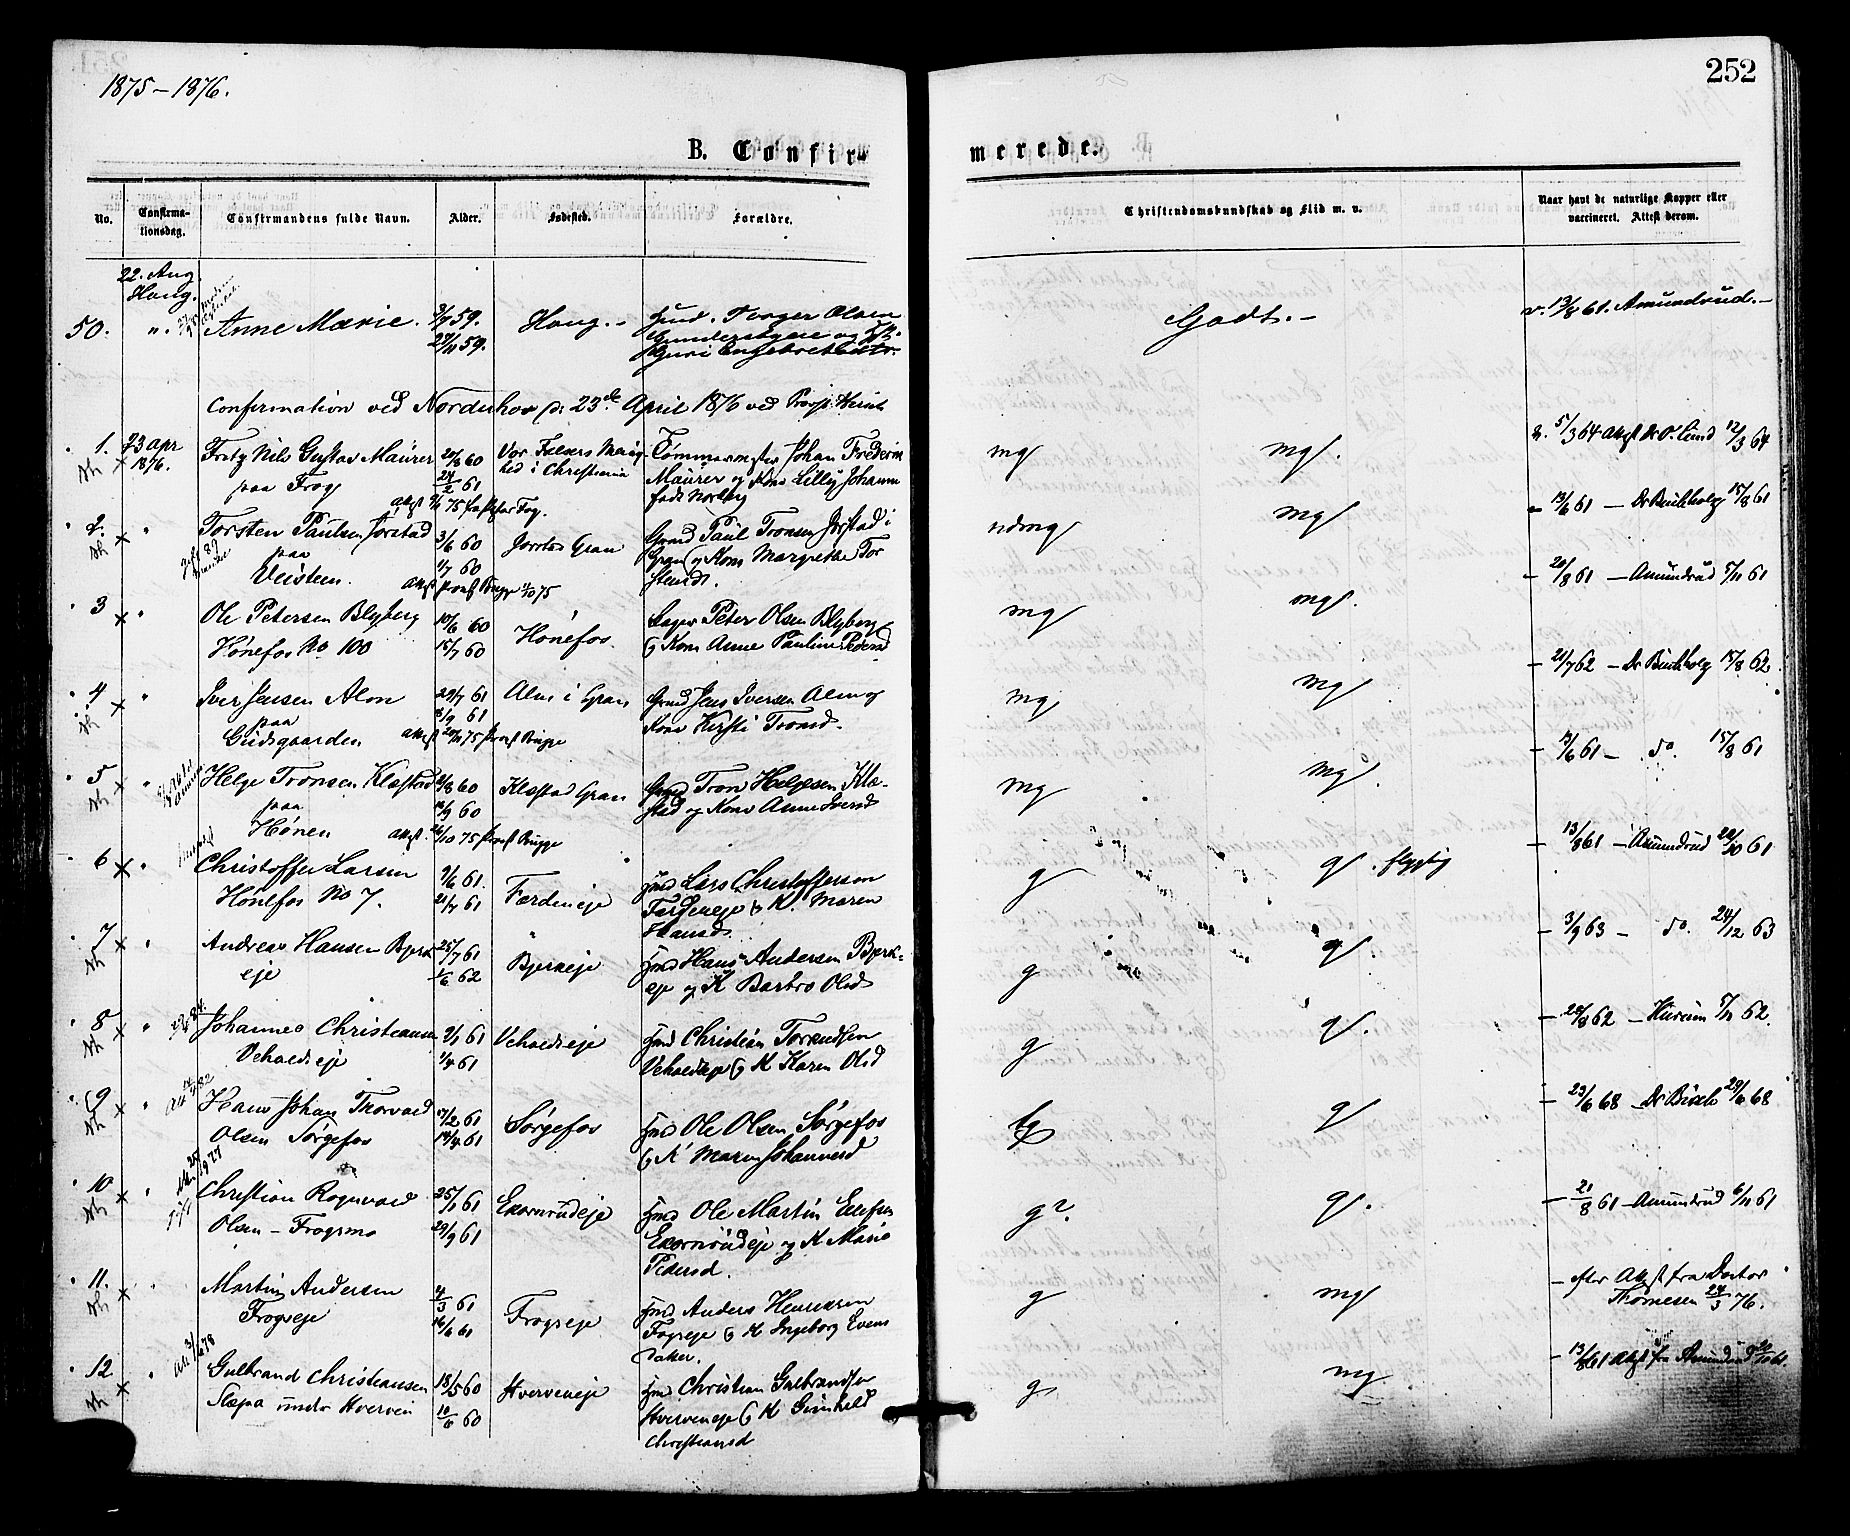 1875–1876.
252
B. Confir-
merede.
No.
Confirma-
tionsdag.
Confirmandens fulde Navn.
Alder.
Fødested.
Forældre.
Christendomskundskab og Flid m. v.
Naar havt de naturlige Kopper eller
vaccineret. Attest derom.
22. Aug.
Houg.
50. " Anne Marie. 59. Houg.- Husmd. Torger Olsen
59. Gunderskjeie og Hst.
Guri Engebretsdtr.
Godt.- v. 13/8 61. Amundrud.-
Confirmation ved Norderhov d: 23de April 1876 ved Provst
1. 23 Apr
1876.
Fritz Nils Gustav Maurer
paa Frog
21/8 60
24/2 61
Vor Frelsers Menig-
hed i Christiania
Tømmermester Johan Frederik
Maurer og Kone Lilly Johanne
mg mg.
5/3 64 attest Dr O. Lund 12/3 64
2. " Torsten Paulsen Jorstad
paa
Veisteen.
3/6 60
1/7 60
Jorstad Gran
Grmd Paul Tronsen Jorstad i
Gran og Kone Margrethe Tor
stensd.
udmg mg
- 13/6 61 - Dr Buchholz 15/8 61
3 " Ole Petersen Blyberg
Hønefos No 100
10/6 60
15/7 60
Hønefos.
Peter Olsen Blyberg
og Kone Anne Pauline Pedersd
mg mg.
- 20/8 61 - Amundrud 5/11 61
4 " Iver Jensen Alm
paa
Gudsgaarden
29/7 61
8/9 61
Alm i Gran
Grmd Jens Iversen Alm og
Kone Kirsti Tronsd.
mg mg
- 21/7 62 - Dr Buchholz 15/8 62
5 " Helge Tronsen Klæstad
paa
Hønen
8 60
9 60
Klæstad Gran
Grmd Tron Helgesen Klæ-
stad og Kone Anne Iversd
mg mg
- 13/6 61 - do. 15/8 61
6 " Christoffer Larsen
Hønefos No 7.
9/6 61.
21/7 61
Færdeneje
Hmd Lars Christoffersen
Færdeneje & K. Maren
Hansd
g g. flygtig
- 13/8 61 - Amundrud 20/10 61
7 " Andreas Hansen Bjerk
eje
25/7 61
1/6 62
Bjerkeje
Hmd Hans Andersen Bjerk-
eje og K Bertro Olsd
g g
- 3/9 63 - do. 24/12 63
8 " Johannes Christiansen
Veholdteje
9/1 61
1/4 61
Veholdteje
Hmd Christian Torkildsen
Veholdteje og K Karen Olsd
g g.
- 20/8 62 - Hurum 5/11 62.
9 " Hans Johan Thorvald
Olsen Sørgefos
17/2 61
14/4 61
Sørgefos
Hmd Ole Olsen Sørgefos
og K Maren Johannesd
g
- 23/6 68 - 29/6 68
10 " Christian Rognvald
Olsen – Frogsmo
25/1 61
29/9 61
Ekornrudeje
Hmd Ole Martin Ellefsen
Ekornrudeje og K Marie
Pedersd.
g? g.
- 21/8 61 - Amundrud 6/11 61
11. " Martin Andersen
Frogseje
4/3 61
16/6 61
Frogseje
Hmd Anders Henriksen
Frogseje og K Ingeborg Evens
datter.
g mg
- efter Attest fra Doctor
Thomesen 24/3 76.
12 " Gulbrand Christiansen
Støpa under Hverven
18/5 60
10/6 60
Hverveneje
Hmd Christian Gulbrandsen
Hverveneje og K Gunhild
Christiansd
g mg
- 13/8 61 Attest fra Amundrud 20/10 61.